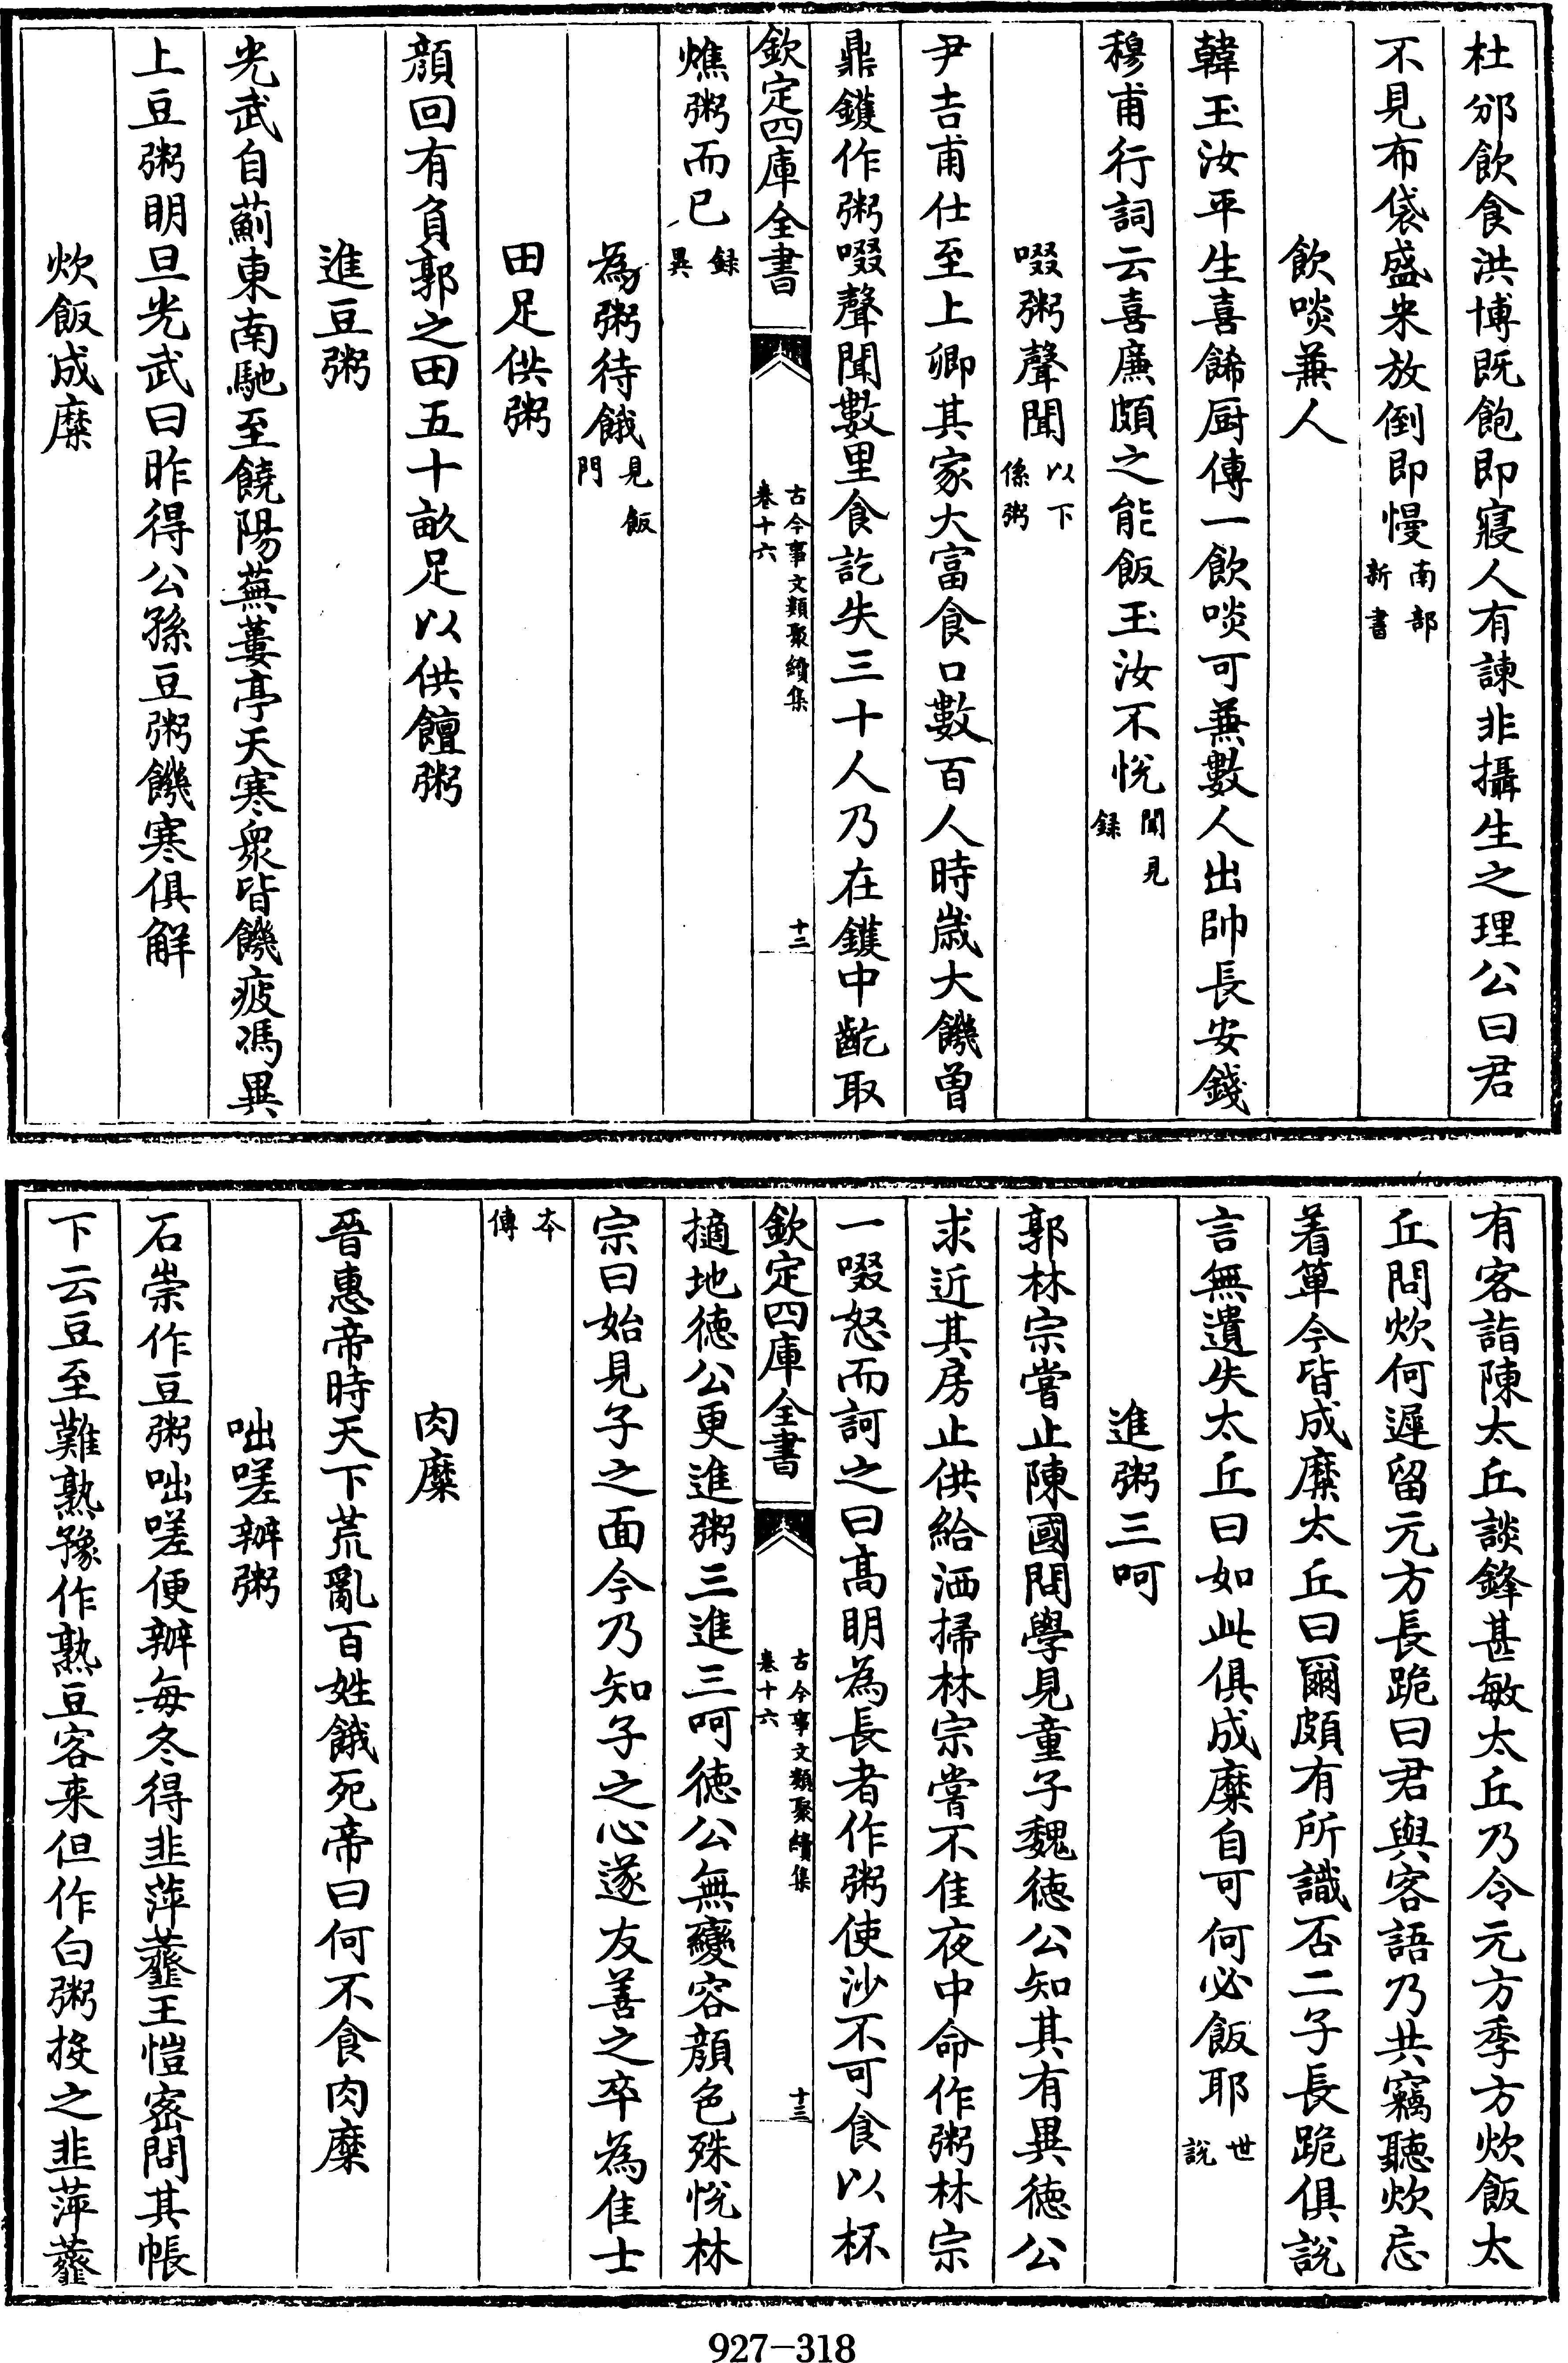 杜邠飲食洪博既飽即寢人有諫非攝生之理公曰君
不見布袋盛米放倒即慢南部新書
飲啖兼人
韓玉汝平生喜餙厨傳一飲啖可兼數人出帥長安錢
穆甫行詞云喜廉頗之能飯玉汝不悅聞見録
啜粥聲聞以下係粥
尹吉甫仕至上卿其家大富食口數百人時歳大饑曽
鼎鑊作粥啜聲聞數里食訖失三十人乃在鑊中齕取
欽定四庫全書
古今事文類聚續集
卷十六
十二
燋粥而已録異
為粥待餓見飯門
田足供粥
顔回有負郭之田五十畝足以供饘粥
進豆粥
光武自薊東南馳至饒陽蕪蔞亭天寒衆皆饑疲馮異
上豆粥明旦光武曰昨得公孫豆粥饑寒俱解
炊飯成糜
有客詣陳太丘談鋒甚敏太丘乃令元方季方炊飯太
丘問炊何遲留元方長跪曰君與客語乃共竊聽炊忘
着箄今皆成糜太丘曰爾頗有所識否二子長跪俱説
言無遺失太丘曰如此俱成糜自可何必飯耶世説
進粥三呵
郭林宗嘗止陳國問學見童子魏徳公知其有異徳公
求近其房止供給洒掃林宗嘗不佳夜中命作粥林宗
一啜怒而訶之曰髙明為長者作粥使沙不可食以杯
欽定四庫全書
古今事文類聚續集
卷十六
十三
擿地徳公更進粥三進三呵徳公無變容顔色殊悅林
宗曰始見子之面今乃知子之心遂友善之卒為佳士
本傳
肉糜
晉惠帝時天下荒亂百姓餓死帝曰何不食肉糜
咄嗟辦粥
石崇作豆粥咄嗟便辦每冬得韭萍虀王愷宻問其帳
下云豆至難熟豫作熟豆客来但作白粥投之韭萍虀
927-318